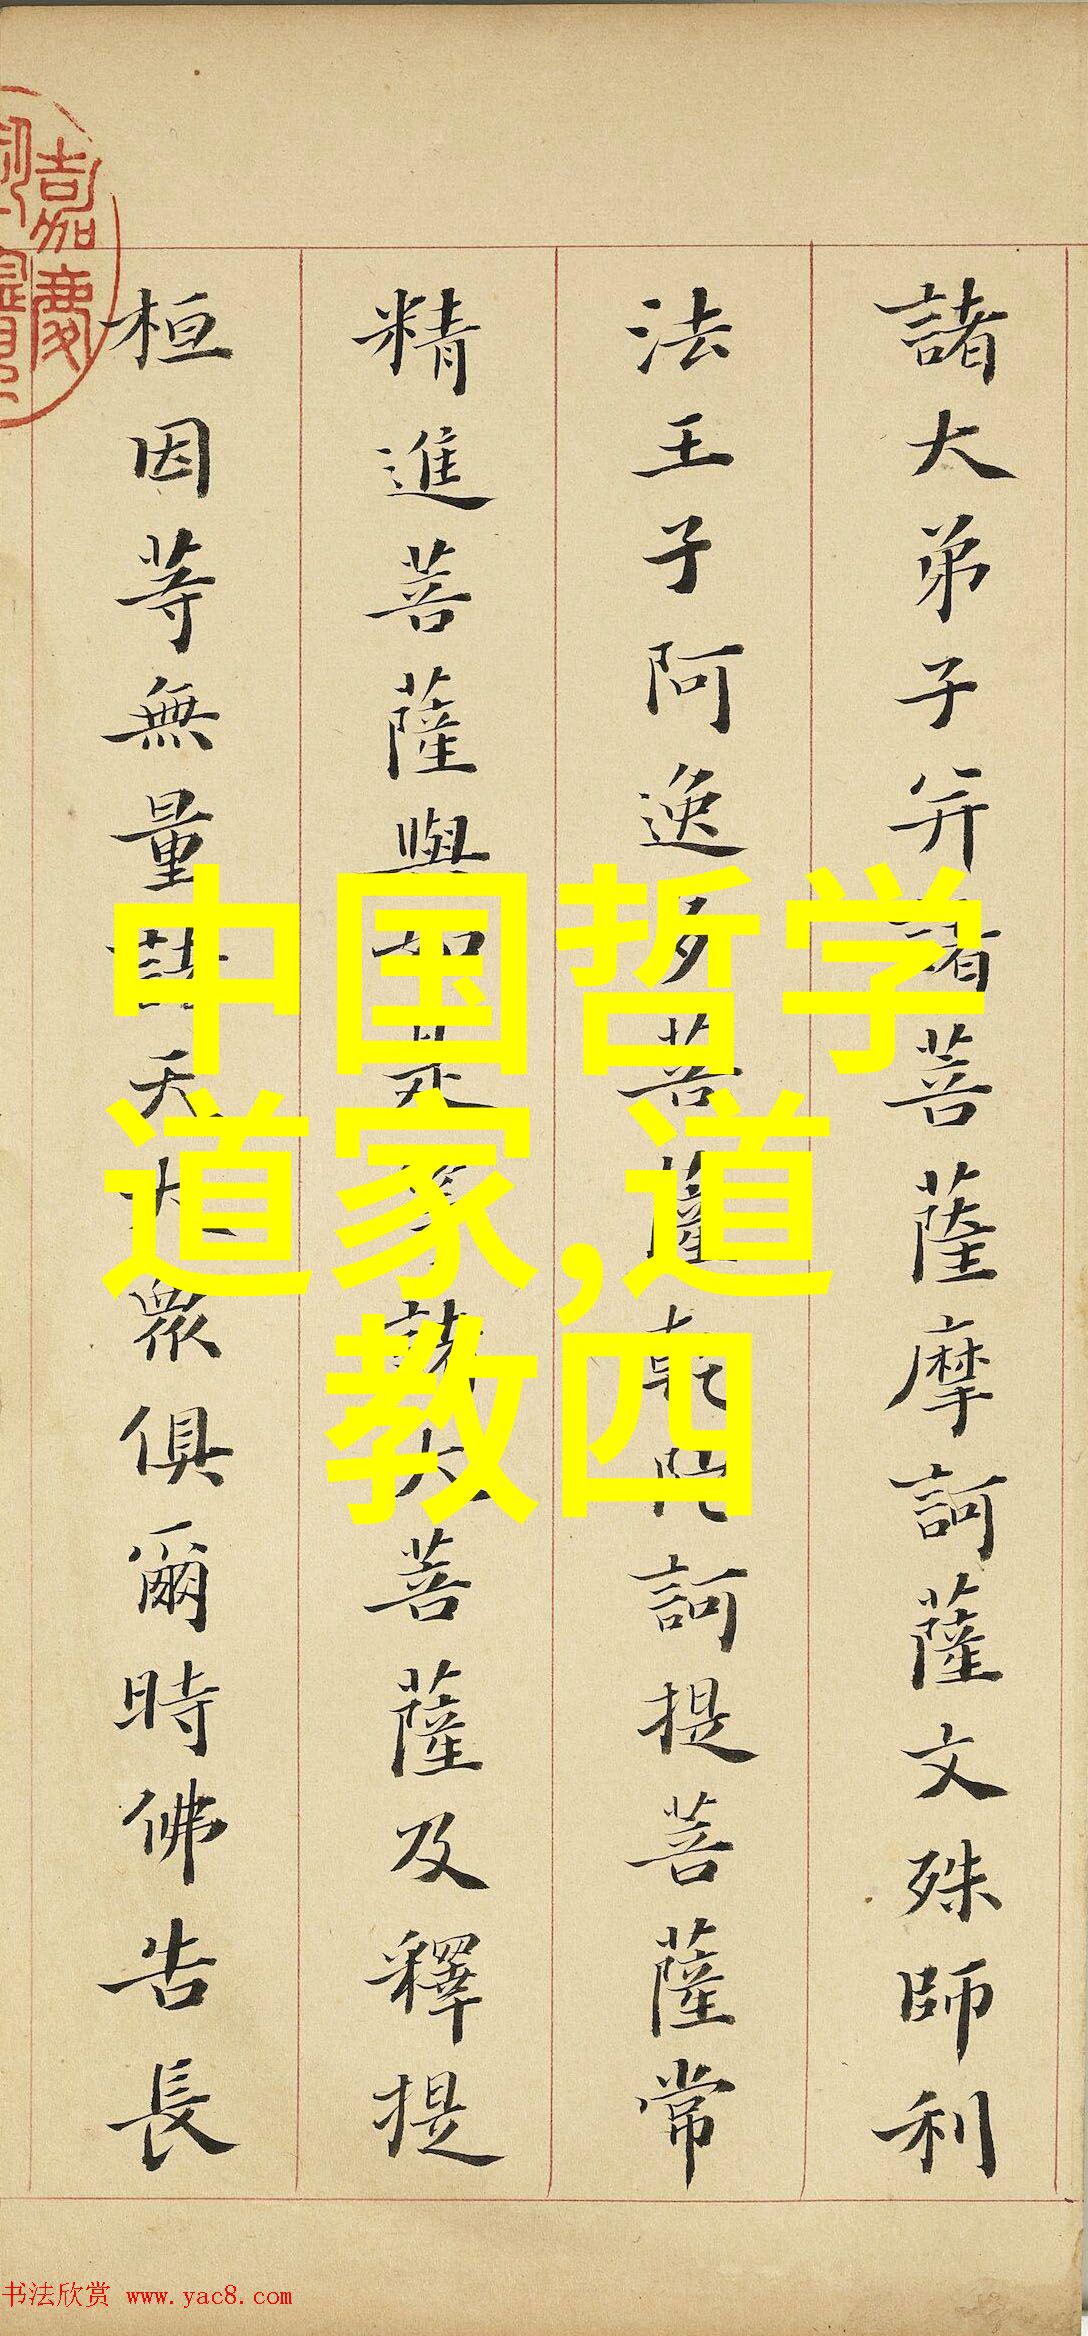 諸大弟子并諸菩薩摩訶薩文殊師利
法王子阿逸多菩薩乾陀訶提菩薩常
精進菩薩與如是等諸大菩薩及釋提
桓因等無量諸天大衆俱爾時佛告長
嘉慶
中国哲学
道家,道
教四
书法欣赏 www.yac8.com